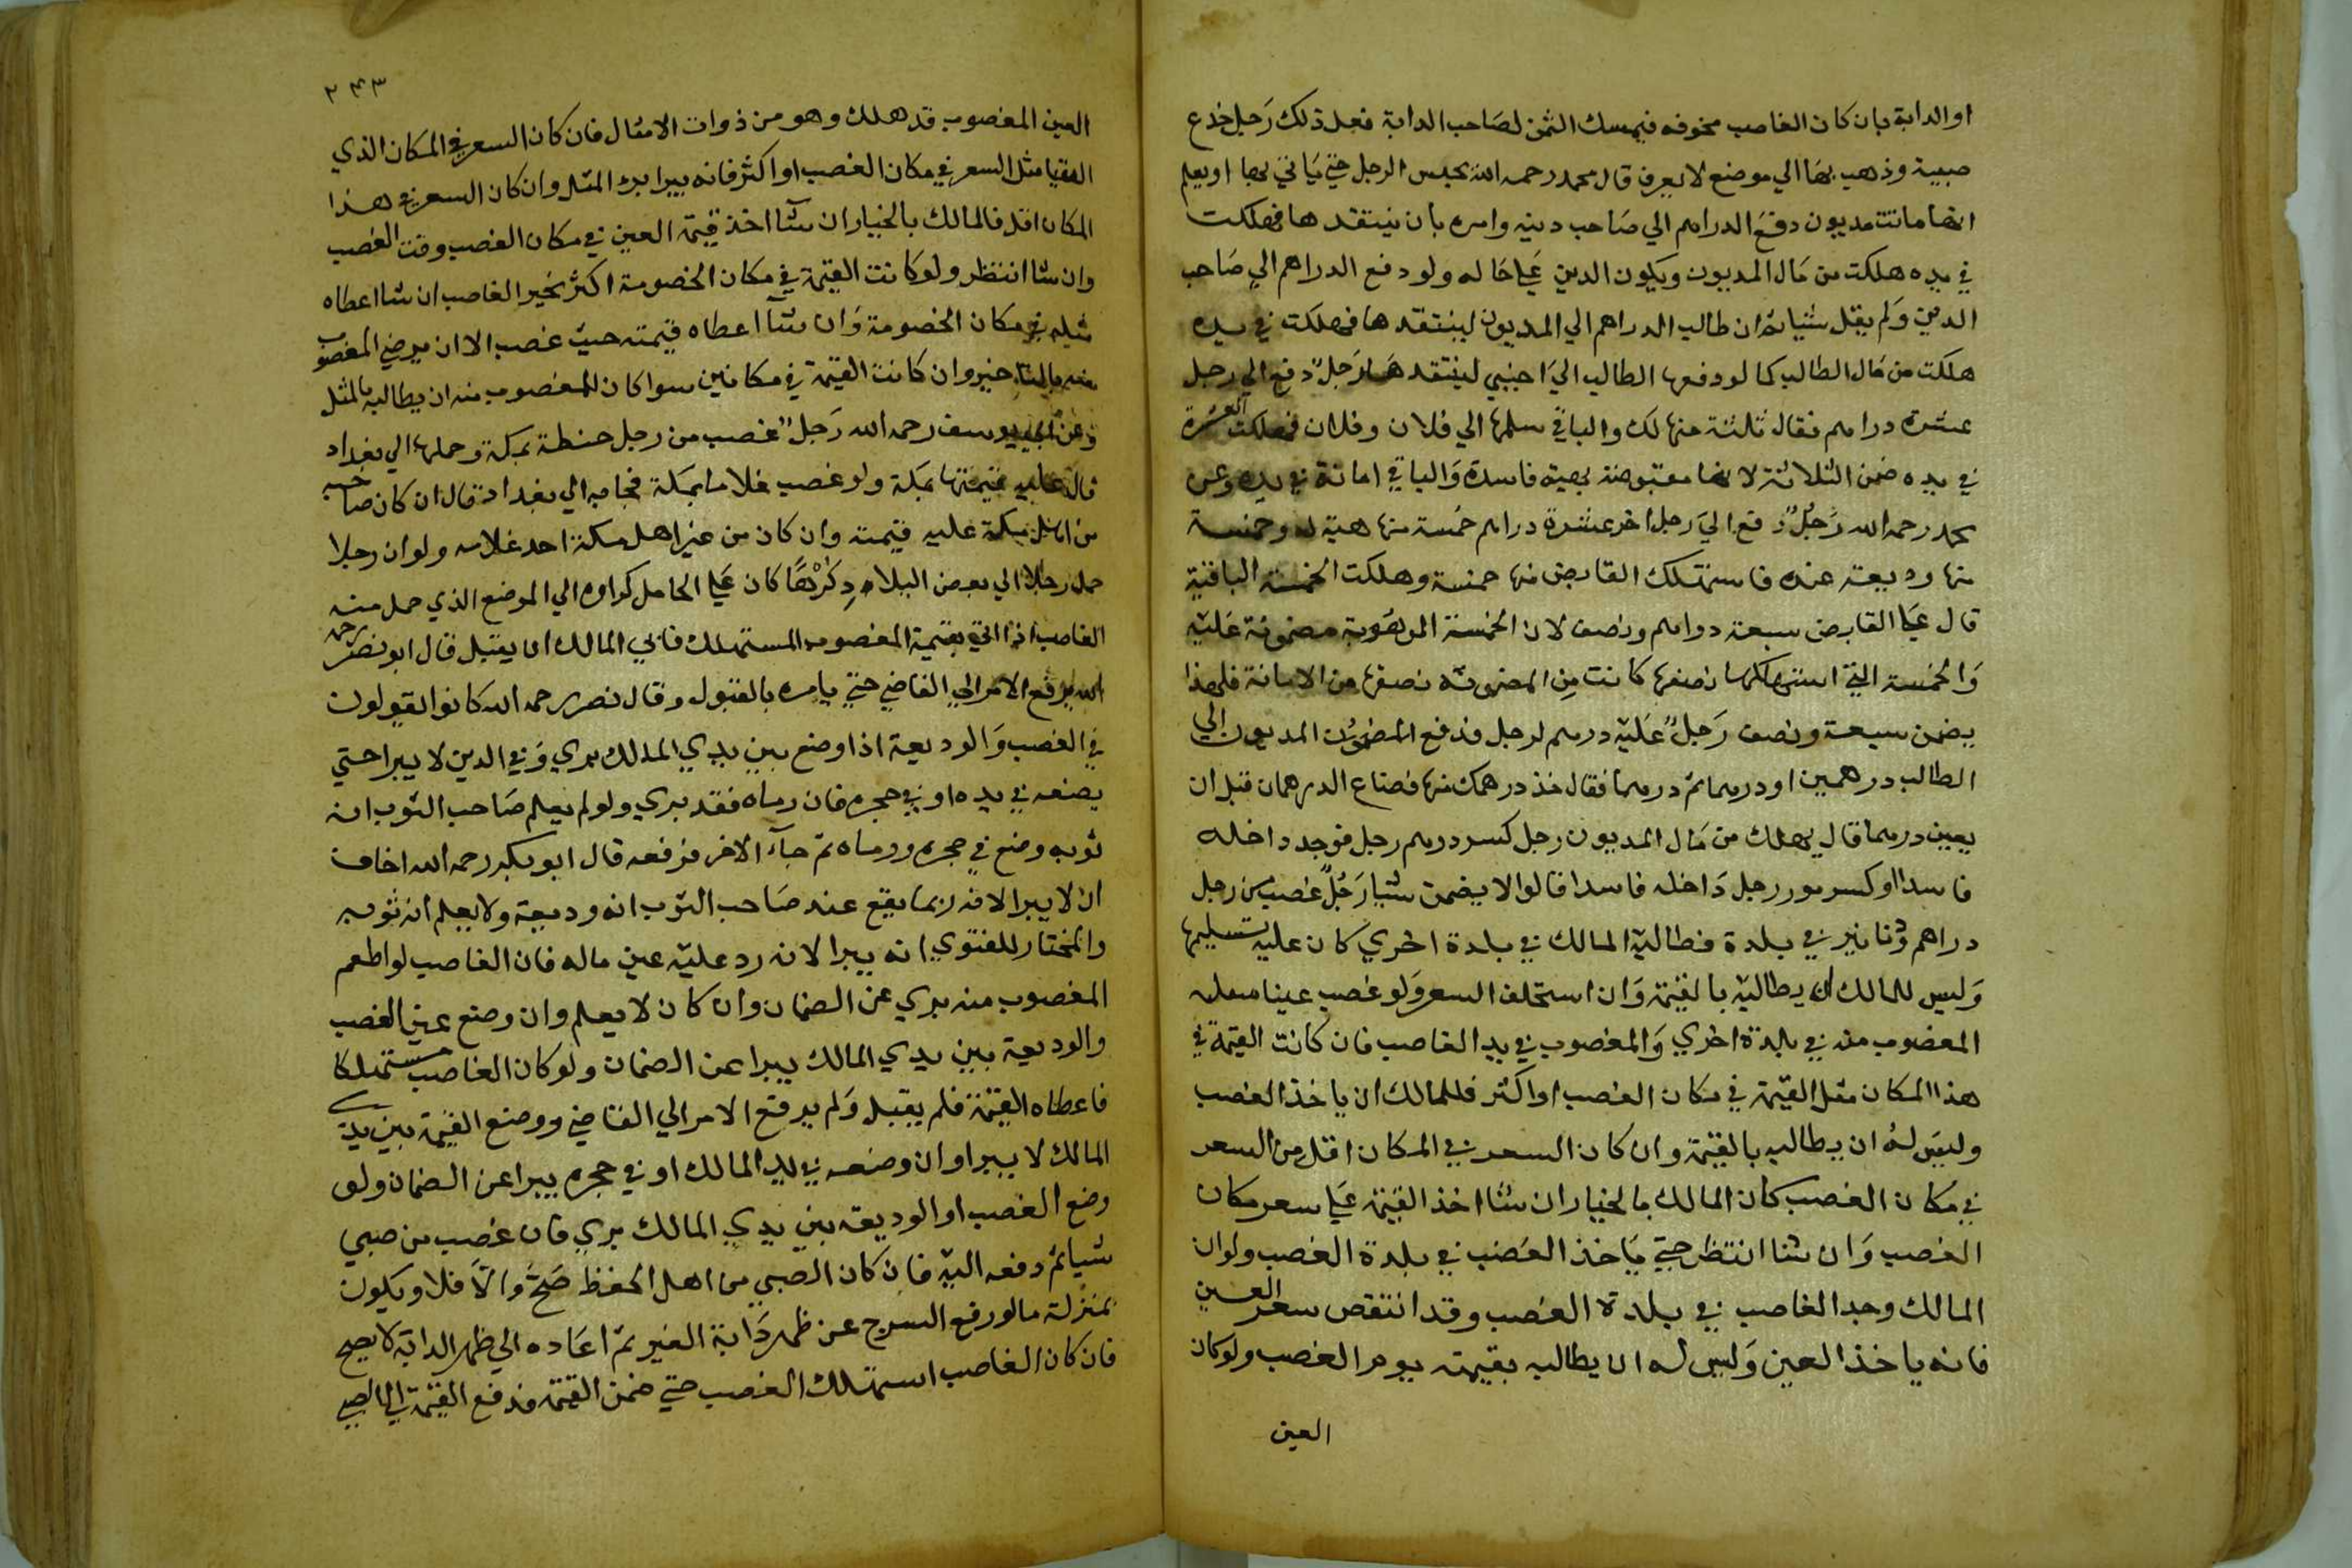 او الدابة بان كان الغاصب مخوفه فيمسك الثمن لصاحب الدابة فعل ذلك رَجل خدع
صبية وذهب بها الي موضع لا يعرف قال محمد رحمه الله يحبس الرجل حتي يَاتي بها او يعلم
انها ماتت مديون دفعَ الدراهم الي صَاحب دينه وامره بان ينتقدها فهلكت
في يده هلكت من مَال المديون ويكون الدين عَلي حَاله ولو دفع الدراهم الي صَاحب
الدين وَلم يقل شيا ثم ان طالب الدراهم الي المديون لينتقدها فهلكت في يده
هلكت من مَال الطالب كما لو دفعها الطالب الي اَجنبي لينتقدها رَجلٌ دفع الي رجل
عشرة دراهم فقال ثلثة منها لك والباقي سلمها الي فلان وفلان فهلكت العشرة
في يده ضمن الثلاثة لانها مقبوضة بهبة فاسدة وَالباقي امانة في يده وعن
محمد رحمه الله رَجلٌ دفع اليَ رجل اخر عشرة دراهم خمسة منها هبة له وخمسة
منها وديعة عنده فاستهلك القابض منها خمسة وهلكت الخمسة الباقية
قال عَلي القابض سبعة دراهم ونصف لان الخمسة الموهوبة مضمونة عَليه
وَالخمسة التي استهلكها نصفها كانت مِن المضمونة نصفها من الامانة فلهذا
يضمن سبعة ونصف رَجلٌ عَليه درهم لرجل فدفع المديون الي
الطالب درهمين او درهما ثم درهما فقال خذ درهمك منها فضاع الدرهمان قبل ان
يعين درهما قال يهلك من مَال المديون رجل كسر درهم رجل فوجد داخله
فاسدا او كسر جوز رجل دَاخله فاسدا قالوا لا يضمن شيا رَجُلٌ غصب من رجل
دراهم ودنانير في بلدة فطالبه المالك في بلدة اخري كان عليه تسليمها
وَليس للمالك ان يطالبه بالقيمة وَان استخلف السعر وَلو غصب عينا
المغصوب منه في بلدة اخري وَالمغصوب في يد الغاصب فان كانت القيمة في
هذا المكان مثل القيمة في مكان الغصب او اكثر فللمالك ان ياخذ الغصب
وليسَ لهُ ان يطالبه بالقيمة وان كان السعر في المكان اقل من السعر
في مكان الغصب كان المالك بالخيار ان شا اخذ القيمة عَلي سعر مكان
الغصب وَان شا انتظر حتي يَاخذ الغصَب في بلدة الغصب ولو ان
المالك وجد الغاصب في بلدة الغصب وقد انتقص سعر العين
فانه ياخذ العين وَليس له ان يطالبه بقيمته يوم الغصب ولو كان
العين
٢٤٣
العين المغصوب قد هلك وهو من ذوات الامثال فان كان السعر في المكان الذي
التقيا مثل السعر في مكان الغصب او اكثر فانه يبرا برد المثل وان كان السعر في هذا
المكان اقل فالمالك بالخيار ان شآ اخذ قيمة العين في مكان الغصب وقت الغصب
وان شا انتظر ولو كانت القيمة في مكان الخصومة اكثر يخير الغاصب ان شا اعطاه
مثله في مكان الخصومة وَان شآ اعطاه قيمته حيث غصب الا ان يرضي المغصوب
منه بالتاخير وان كانت القيمة في مكانين سوا كان للمغصوب منه ان يطالبه بالمثل
وَعن ابي يوسف رحمه الله رَجلٌ غصب من رجل حنطة بمكة وحملها الي بغداد
قال عليه قيمتها بمكة ولو غصب غلاما بمكة فجا به الي بغداد قال ان كان صاحبه
من اهل مكة عليه قيمته وان كان من غير اهل مكة اخذ غلامه ولو ان رجلا
حمل رجلا الي بعض البلاد كُرْهًا كان عَلي الحامل كراوه الي الموضع الذي حمل منه
الغاصب اذا اتي بقيمة المغصوب المستهلك فابي المالك ان يقبل قال ابو نصر رحمه
الله يرفع الامر الي القاضي حتي يامره بالقبول وقال نصر رحمه الله كانوا يقولون
في الغصب وَالوديعة اذا وضع بين يدي المالك بري وَفي الدين لا يبرا حتي
يضعه في يده او في حجره فان رماه فقد بري ولو لم يعلم صَاحب الثوب انه
ثوبه وضع في حجره ورماه ثم جآء الاخر فرفعه قال ابو بكر رحمه الله اخاف
ان لا يبرا لانه ربما يقع عند صَاحب الثوب انه وديعة ولا يعلم انه ثوبه
والمختار للفتوي انه يبرا لانه رد عليه عين ماله فان الغاصب لو اطعم
المغصوب منه بري عن الضمان وان كان لا يعلم وان وضع عين الغصب
والوديعة بين يدي المالك يبرا عن الضمان ولو كان الغاصب مستهلكا
فاعطاه القيمة فلم يقبل وَلم يرفع الامر الي القاضي ووضع القيمة بين يدي
المالك لا يبرا وان وضعه في يد المالك او في حجره يبرا عن الضمان ولو
وضع الغصب او الوديعة بين يدي المالك بري فان غصب من صبي
شيا ثم دفعه اليه فان كان الصبي من اهل الحفظ صَحَّ وَالّا فلا ويكون
بمنزلة ما لو رفع السرج عن ظهر دَابة الغير ثم اعَاده الي ظهر الدابة لا يصح
فان كان الغاصب استهلك الغصب حتي ضمن القيمة فدفع القيمة الي الصبي